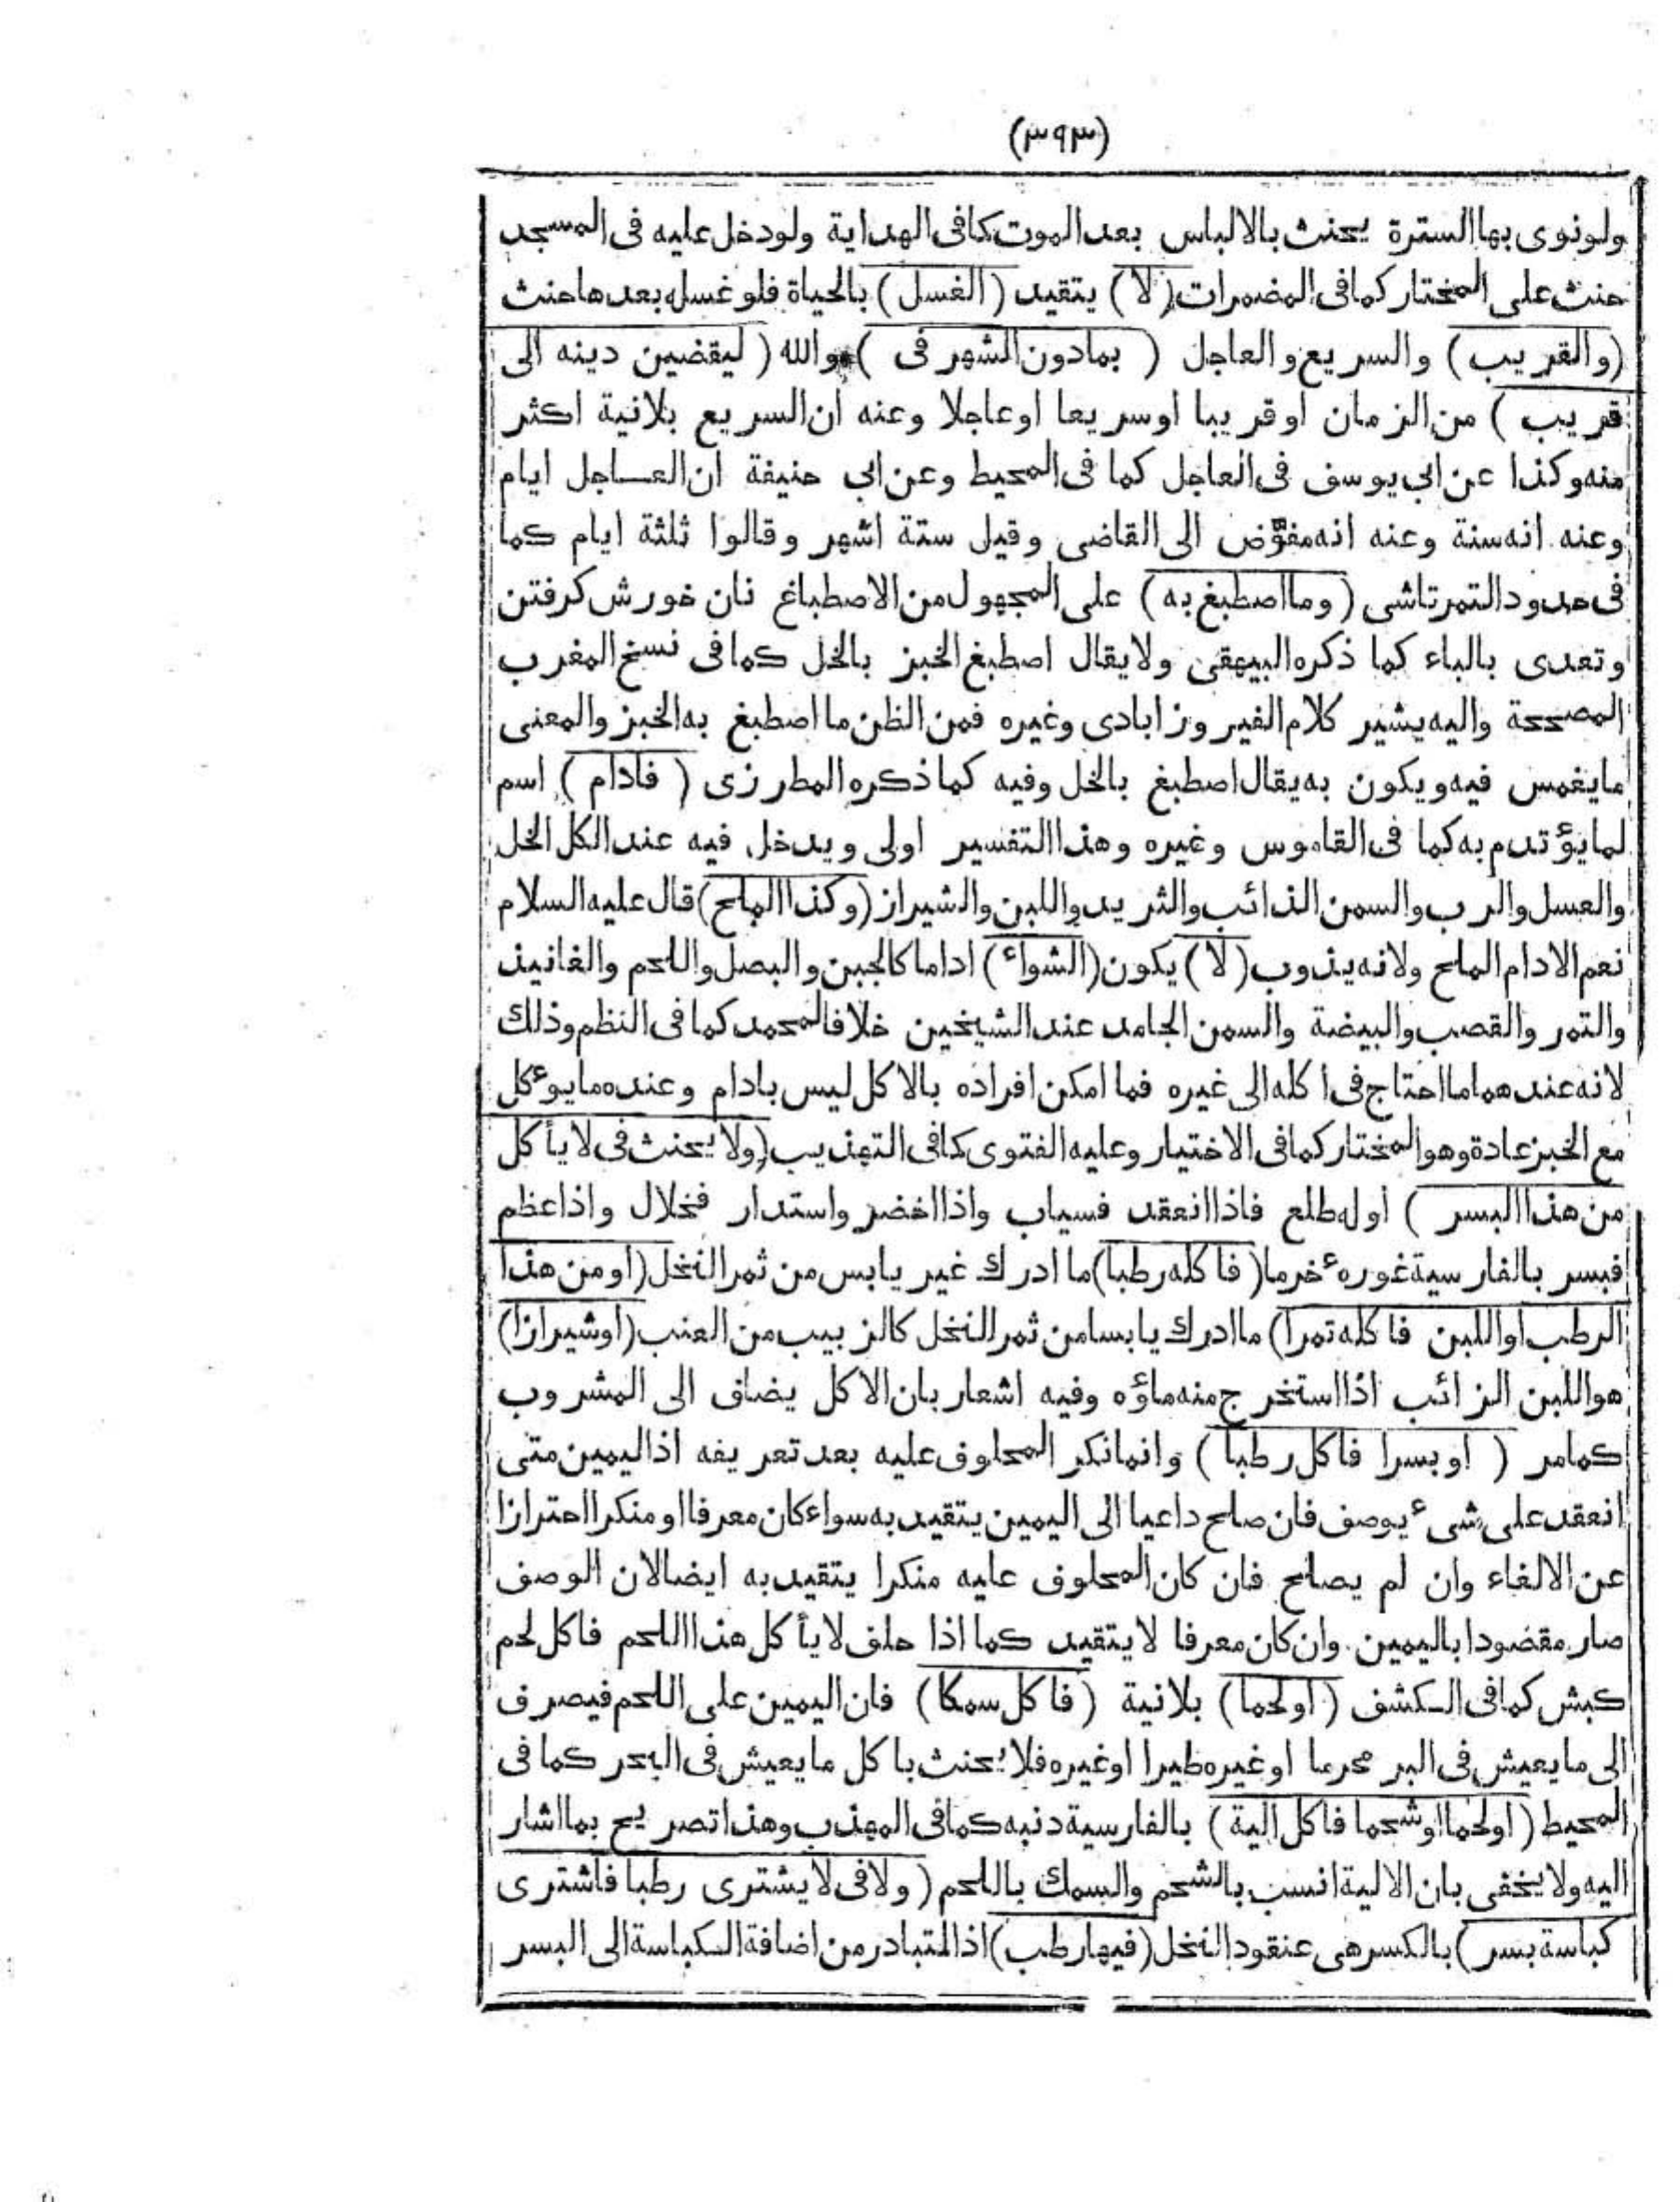 (٣٩٣)
ولو نوى بها السترة يحنث بالالباس بعد الموت كما فى الهداية ولو دخل عليه فى المسجد
حنث على المختار كما فى المضمرات (لا) يتقيد (الغسل) بالحياة فلو غسله بعدها حنث
(والقريب) والسريع والعاجل (بمادون الشهر فى) والله (ليقضين دينه الى
قريب) من الزمان او قريبا او سريعا او عاجلا وعنه ان السريع بلا نية اكثر
منه وكذا عن ابي يوسف فى العاجل كما فى المحيط وعن ابى حنيفة ان العاجل ايام
وعنه انه سنة وعنه انه مفوّض الى القاضى وقيل ستة اشهر وقالوا ثلثة ايام كما
فى حدود التمرتاشى (وما اصطبغ به) على المجهول من الاصطباغ نان خورش كرفتن
وتعدى بالباء كما ذكره البيهقى ولا يقال اصطبغ الخبز بالخل كما فى نسخ المغرب
المصححة واليه يشير كلام الفيروزابادى وغيره فمن الظن ما اصطبغ به الخبز والمعنى
ما يغمس فيه ويكون به يقال اصطبغ بالخل وفيه كما ذكره المطرزى (فادام) اسم
لما يؤتدم به كما فى القاموس وغيره وهذا التفسير اولى ويدخل فيه عند الكل الخل
والعسل والرب والسمن الذائب والثريد واللبن والشيراز (وكذا الملح) قال عليه السلام
نعم الادام الملح ولانه يذوب (لا) يكون (الشواء) اداما كالجبن والبصل واللحم والفانيذ
والتمر والقصب والبيضة والسمن الجامد عند الشيخين خلافا لمحمد كما فى النظم وذلك
لانه عندهما ما احتاج فى اكله الى غيره فما امكن افراده بالاكل ليس بادام وعنده ما يوءكل
مع الخبز عادة وهو المختار كما فى الاختيار وعليه الفتوى كما فى التهذيب (ولا يحنث فى لا يأكل
من هذا البسر) اوله طلع فاذا انعقد فسياب واذا اخضر واستدار فخلال واذا عظم
فبسر بالفارسية غورهء خرما (فاكله رطبا) ما ادرك غير يابس من ثمر النخل (او من هذا
الرطب او اللبن فاكله تمرا) ما ادرك يابسا من ثمر النخل كالزبيب من العنب (او شيرازا)
هو اللبن الزائب اذا استخرج منه ماؤه وفيه اشعار بان الاكل يضاف الى المشروب
كمامر (او بسرا فاكل رطبا) وانما نكر المحلوف عليه بعد تعريفه اذ اليمين متى
انعقد على شىء يوصف فان صلح داعيا الى اليمين يتقيد به سواء كان معرفا او منكرا احترازا
عن الالغاء وان لم يصلح فان كان المحلوف عليه منكرا يتقيد به ايضا لان الوصف
صار مقصودا باليمين وان كان معرفا لا يتقيد كما اذا حلف لا يأكل هذا اللحم فاكل لحم
كبش كما فى الكشف (او لحما) بلا نية (فاكل سمكا) فان اليمين على اللحم فيصرف
الى ما يعيش فى البر محرما او غيره طيرا او غيره فلا يحنث باكل ما يعيش فى البحر كما فى
المحيط (او لحما او شحما فاكل الية) بالفارسية دنبه كما فى المهذب وهذا تصريح بما اشار
اليه ولا يخفى بان الالية انسب بالشحم والسمك باللحم (ولا فى لا يشترى رطبا فاشترى
كباسة بسر) بالكسر هى عنقود النخل (فيها رطب) اذ المتبادر من اضافة الكباسة الى البسر